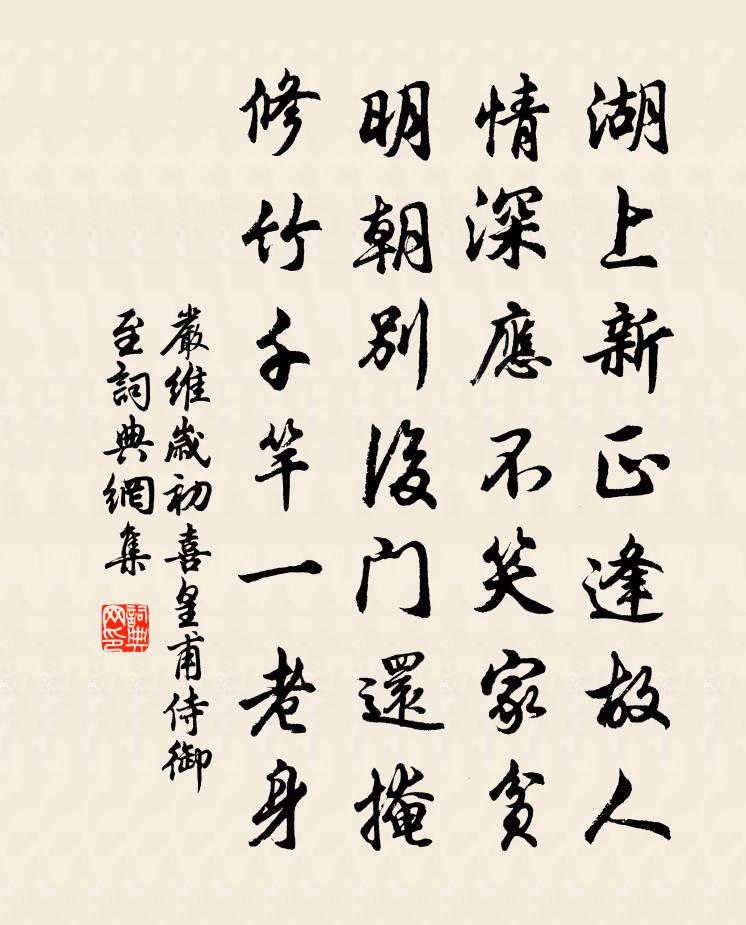 湖上新正逢故人
情深應不笑家貧
明朝別後門還掩
修竹千竿一老身
嚴維歲初喜皇甫侍御
至詞典網集
詞典
网印